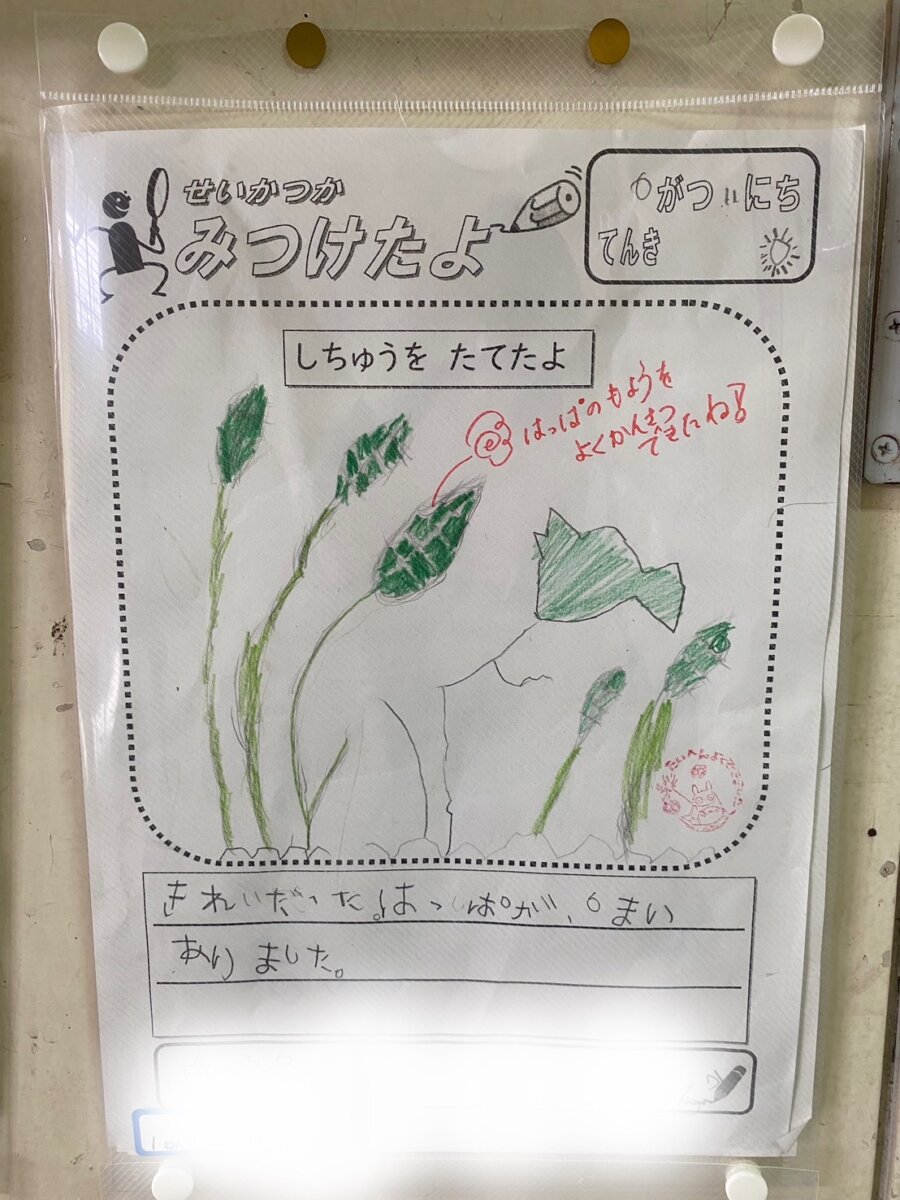 せいかつか
みつけたよ
6がつ 11にち
てんき
しちゅうを たてたよ
はっぱのもようを
よくかんさつ
できたね!
たいへんよくできました
きれいだった。はっぱが、6まい
ありました。